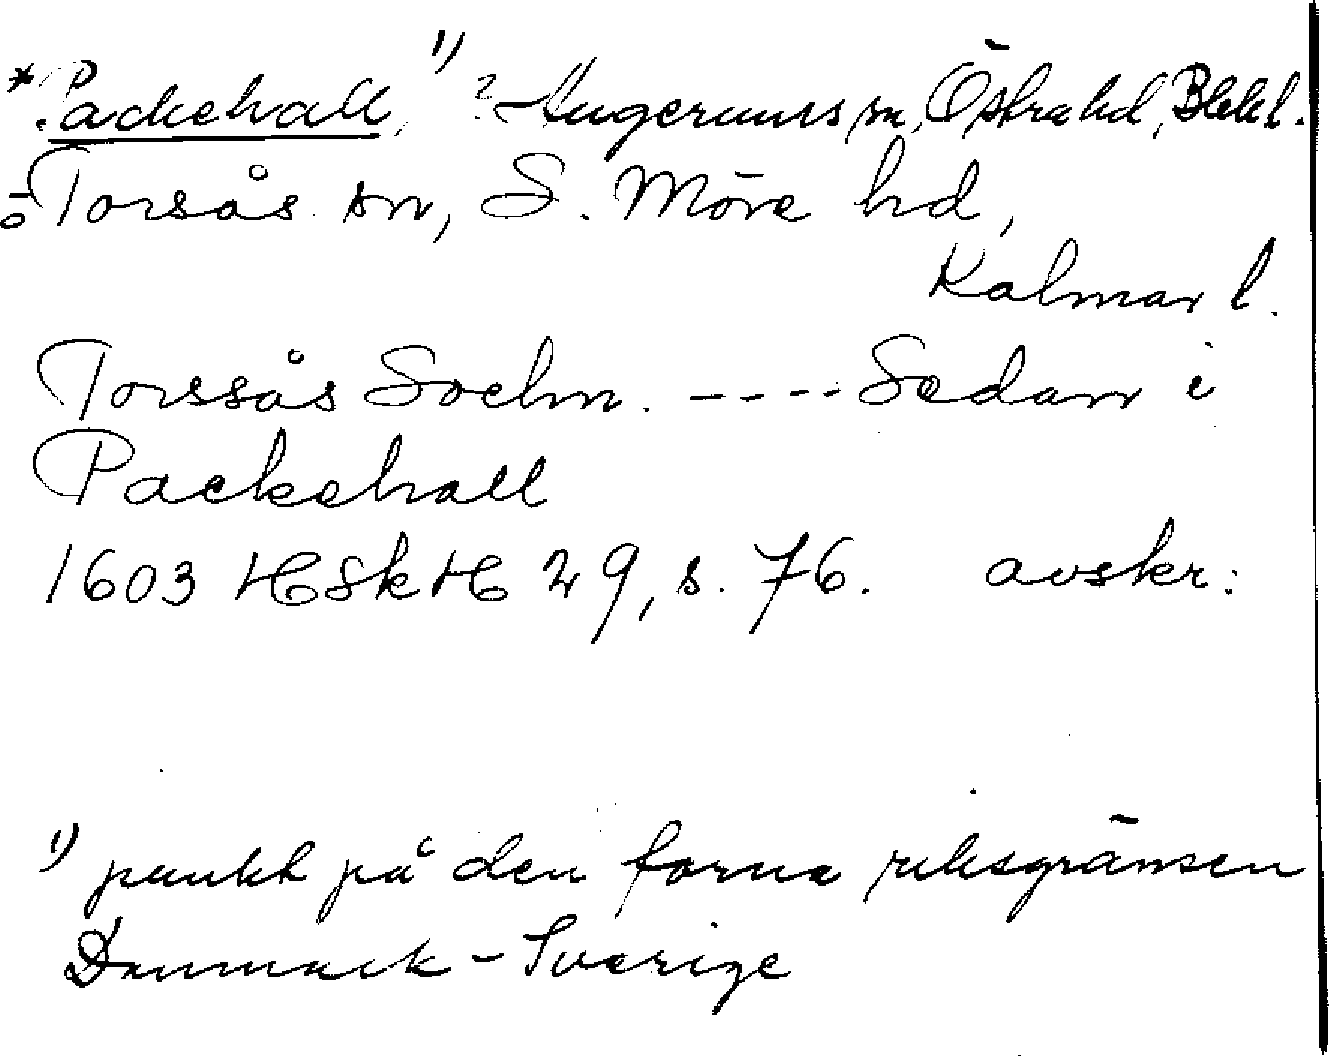 *Packehall, 1) ? Augerums sn, Östra hd, Blek l.
o Torsås sn, S. Möre hd,
Kalmar l.
Torssås Sochn. ---- Sedan i
Packehall
1603 HSkH 29, s. 76. avskr.
1) punkt på den forna riksgränsen
Danmark - Sverige